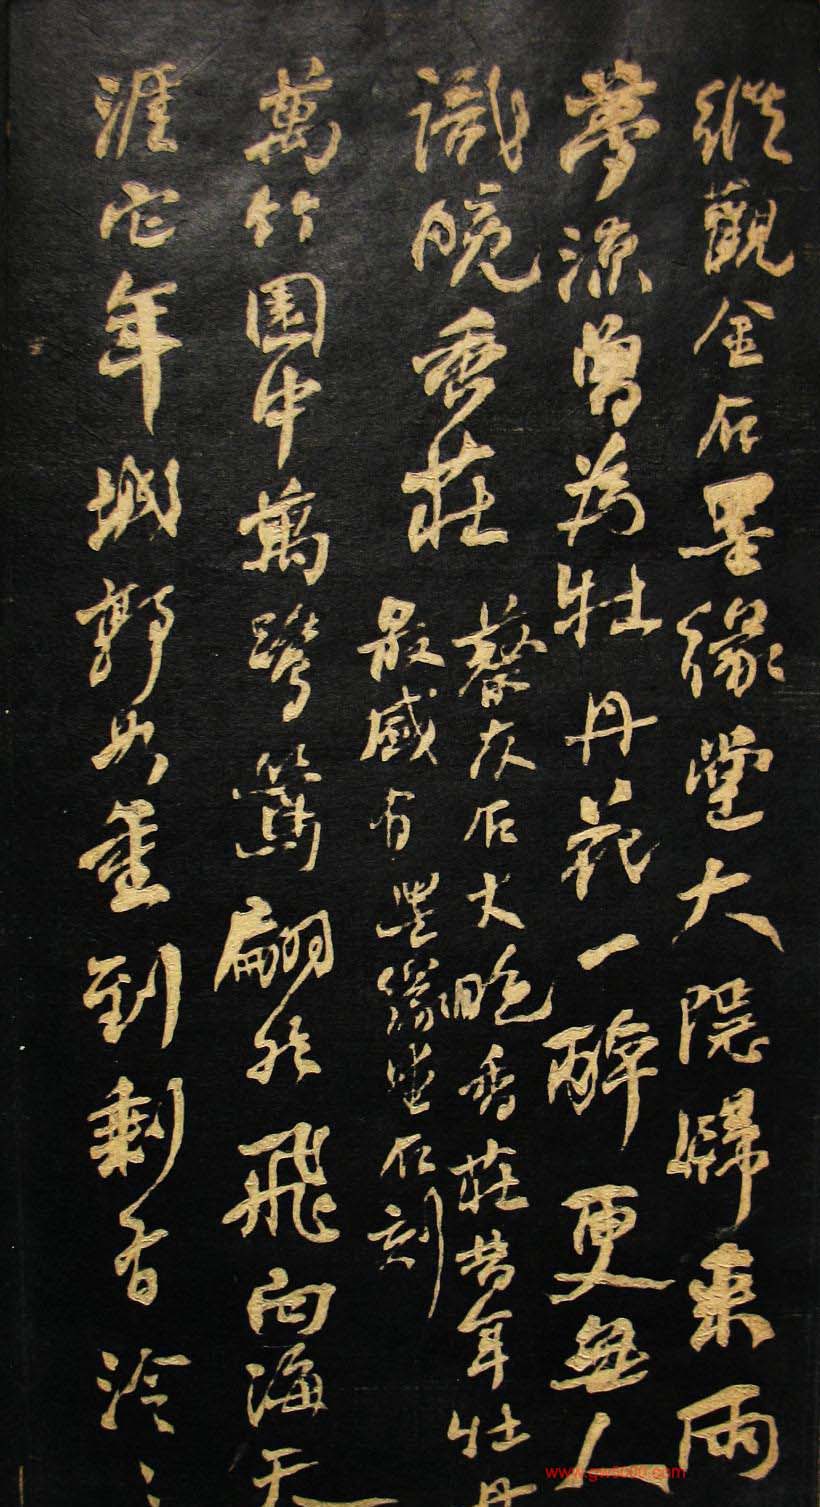 縱觀金石墨緣堂大隱歸來兩
夢涼曾為牡丹花一醉更無人
識晚香莊
蔡友石太晚香莊昔年牡丹
最盛有墨緣堂石刻
萬竹園中萬鷺鷥翩然飛向海天
涯它年城郭如重到剩有泠〻